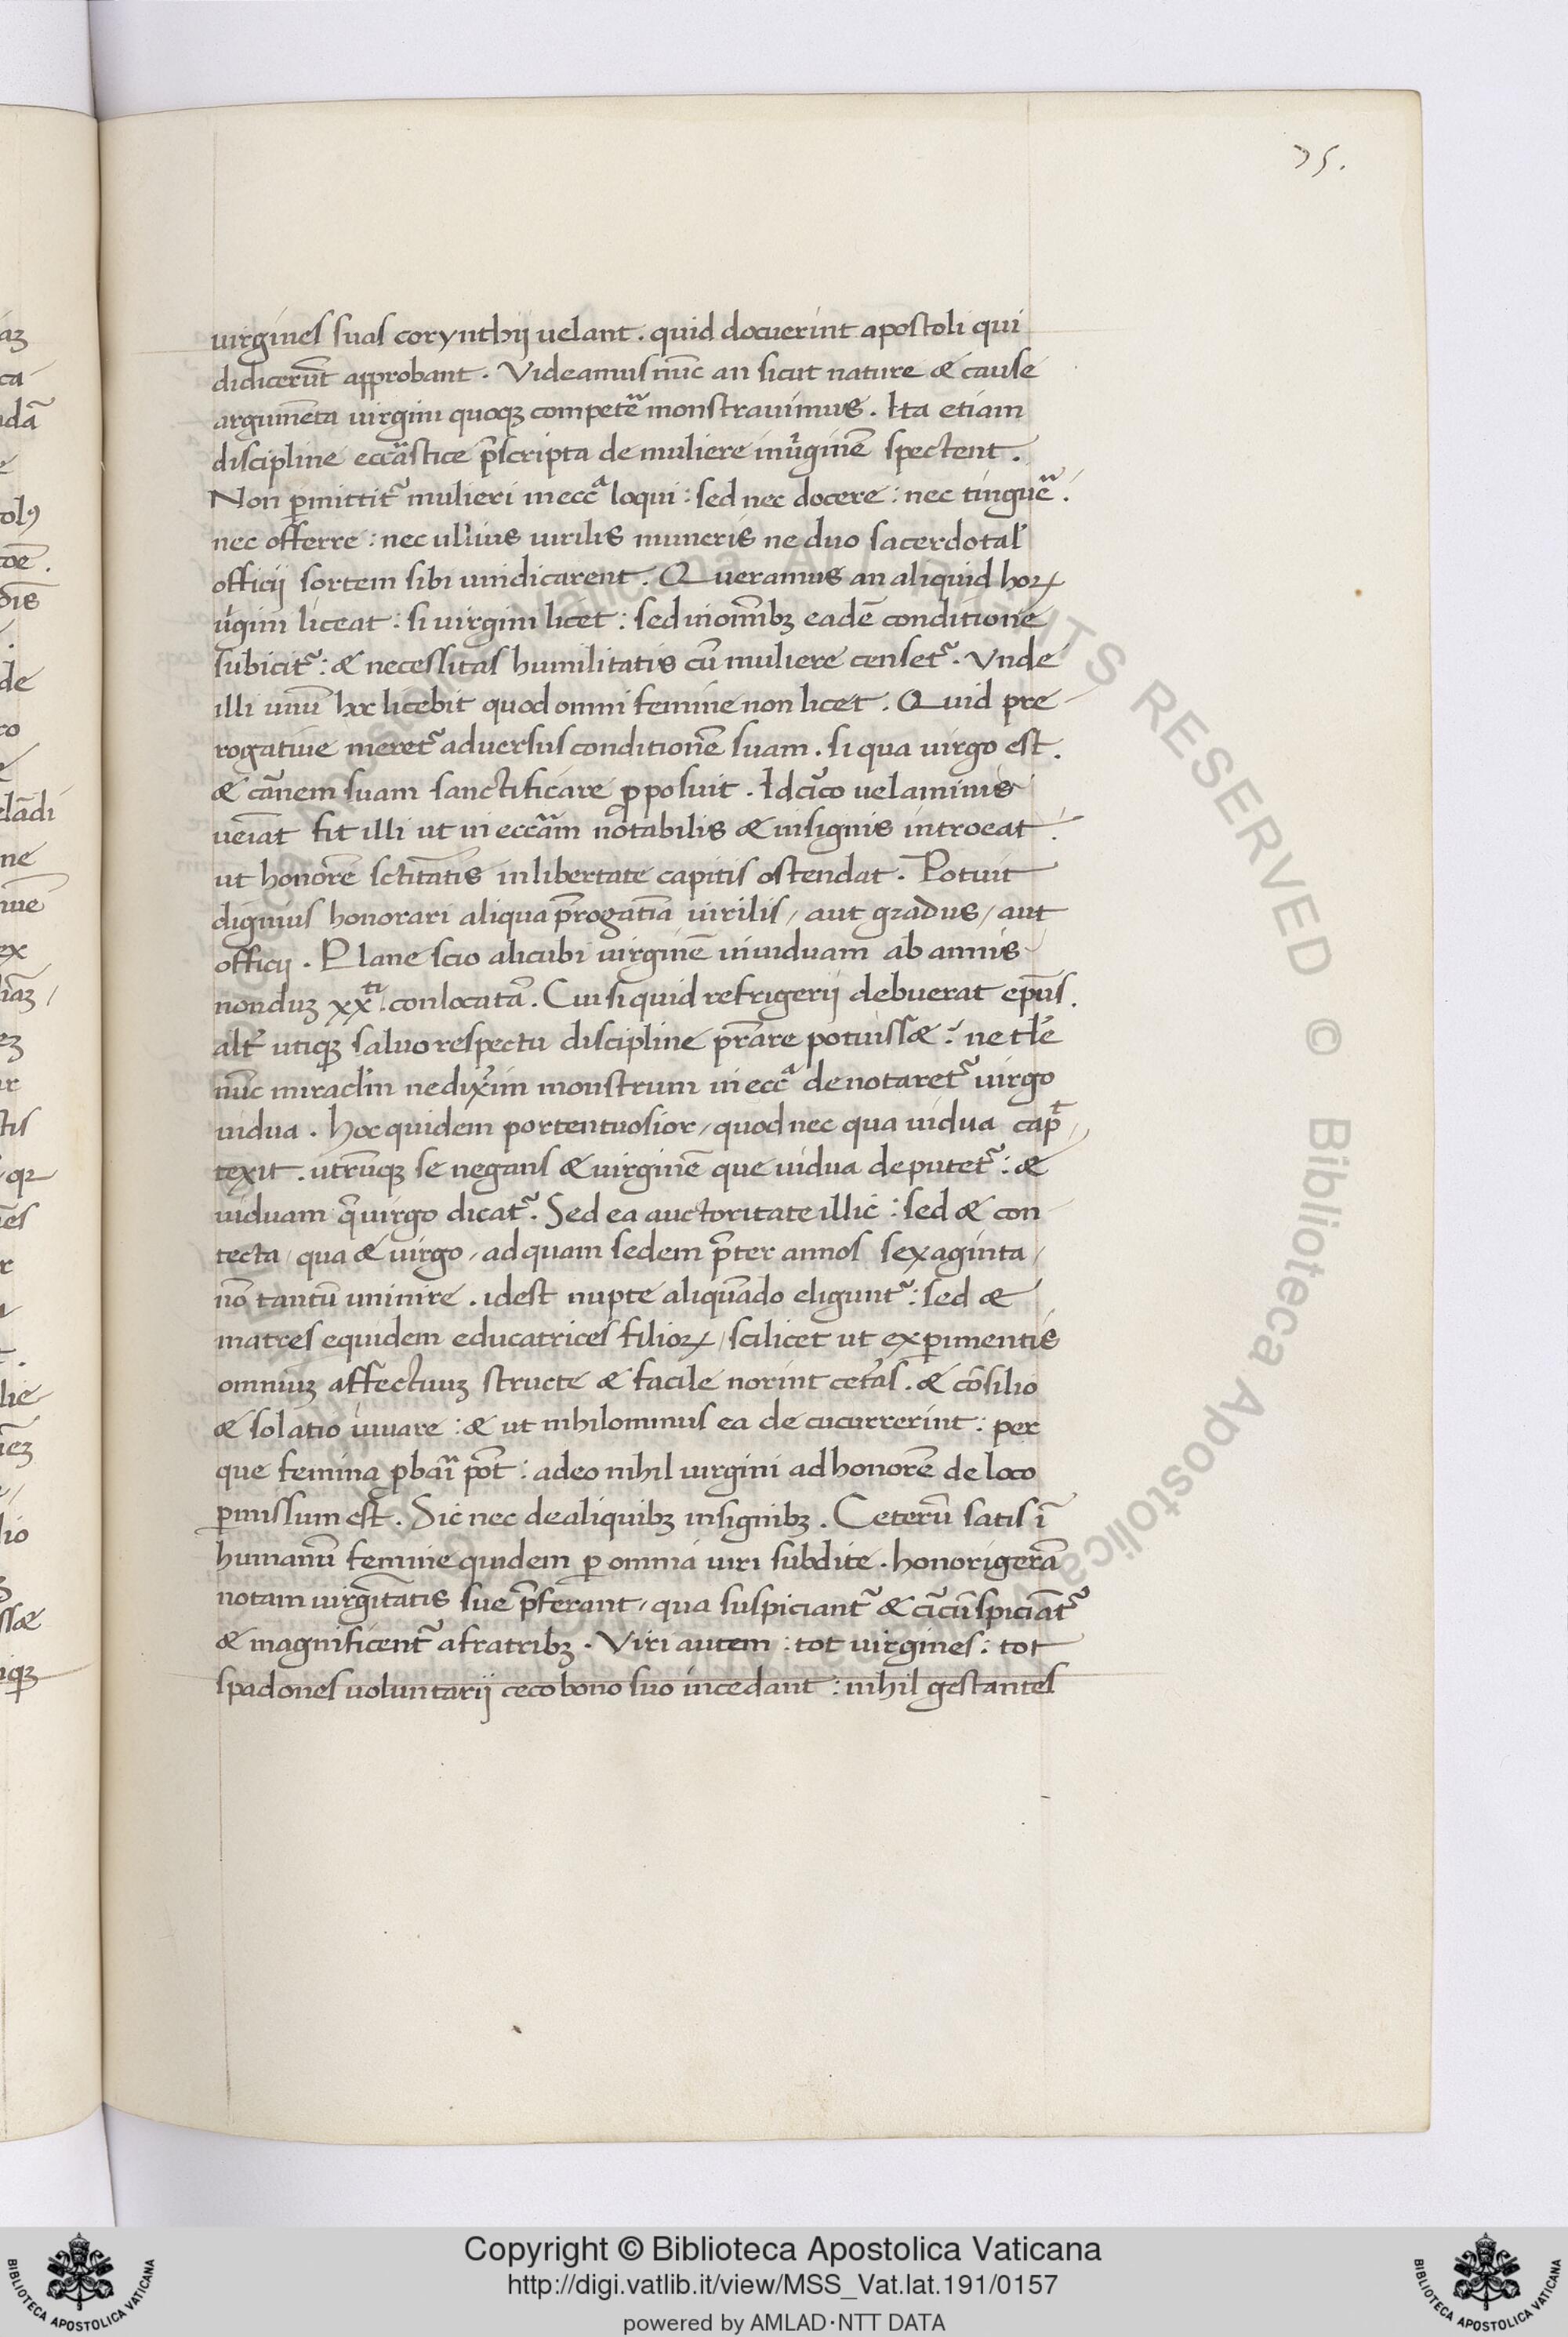 75.
virgines suas corynthij velant . quid docuerint apostoli qui
didicerūt approbant . Videamus nūc an sicut nature & cause
argumēta virgini quoqꝫ competē monstravimus . Ita etiam
discipline eccāstice p̄scripta de muliere inv̓ginē spectent .
Non ꝑmittit᷑ mulieri in eccᵃ loqui : sed nec docere : nec tinguē .
nec offerre : nec ullius virilis muneris ne duo sacerdotal̓
officij sortem sibi vindicarent . Queramus an aliquid hoꝝ
v̓gini liceat : si virgini licet : sed in om̄ibꝫ eadē conditione
subicit᷑ : & necessitas humilitatis cū muliere censet᷑ . Vnde
illi unū hoc licebit quod omni femine non licet . Quid pre
rogative meret᷑ adversus conditionē suam . si qua virgo est .
& cānem suam sanctificare ꝓposuit . Idcīco velaminis
veīat fit illi ut in eccām notabilis & insignis introeat :
ut honorē sctitātis in libertate capitis ostendat . Potuit
dignius honorari aliqua p̄rogatīa virilis / aut gradus / aut
officij . Plane scio alicubi virginē in viduam ab annis
nonduꝫ xxᵗⁱ . conlocatā . Cui si quid refrigerij debuerat ep̄us .
alt̓ utiqꝫ salvo respectu discipline p̄rāre potuissæ : ne tłe
nūc miracl̓m ne dix̓im monstrum in eccᵃ denotaret᷑ virgo
vidua . hoc quidem portentuosior / quod nec qua vidua cap̄ᵗ
texit . utrūqꝫ se negans & virginē que vidua deputet᷑ : &
viduam q̄ virgo dicat᷑ . Sed ea auctoritate illic : sed & con
tecta / qua & virgo / ad quam sedem p̄ter annos sexaginta /
nō tantū uninire . idest nupte aliquādo eligunt᷑ : sed &
matres equidem educatrices filioꝝ / scilicet ut exꝑimentis
omniuꝫ affectuuꝫ structe & facile norint cet̓as . & cōsilio
& solatio iuvare : & ut nihilominus ea decucurrerint : per
que femina ꝓbaī p̄ōt : adeo nihil virgini ad honorē de loco
ꝑmissum est . Sic nec de aliquibꝫ insignibꝫ . Ceterū satis ī
humanū femine quidem ꝑ omnia viri subdite . honorigerā
notam virgītātis sue p̄ferant / qua suspiciant᷑ & cīcūspiciāt᷑
& magnificent᷑ a fratribꝫ . Viri autem : tot virgines : tot
spadones voluntarij ceco bono suo incedant : nihil gestantes
Copyright © Biblioteca Apostolica Vaticana
http://digi.vatlib.it/view/MSS_Vat.lat.191/0157
powered by AMLAD·NTT DATA